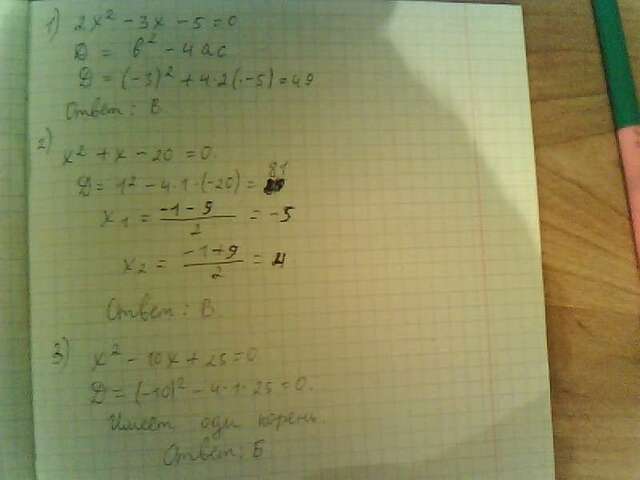 1) 2x² - 3x - 5 = 0
D = b² - 4ac
D = (-3)² + 4·2(·-5) = 49
Ответ: В
2) x² + x - 20 = 0.
D = 1² - 4·1·(-20) = 81
x₁ = (-1-9)/2 = -5
x₂ = (-1+9)/2 = 4
Ответ: В.
3) x² - 10x + 25 = 0
D = (-10)² - 4·1·25 = 0.
Имеет оди корень.
Ответ: Б